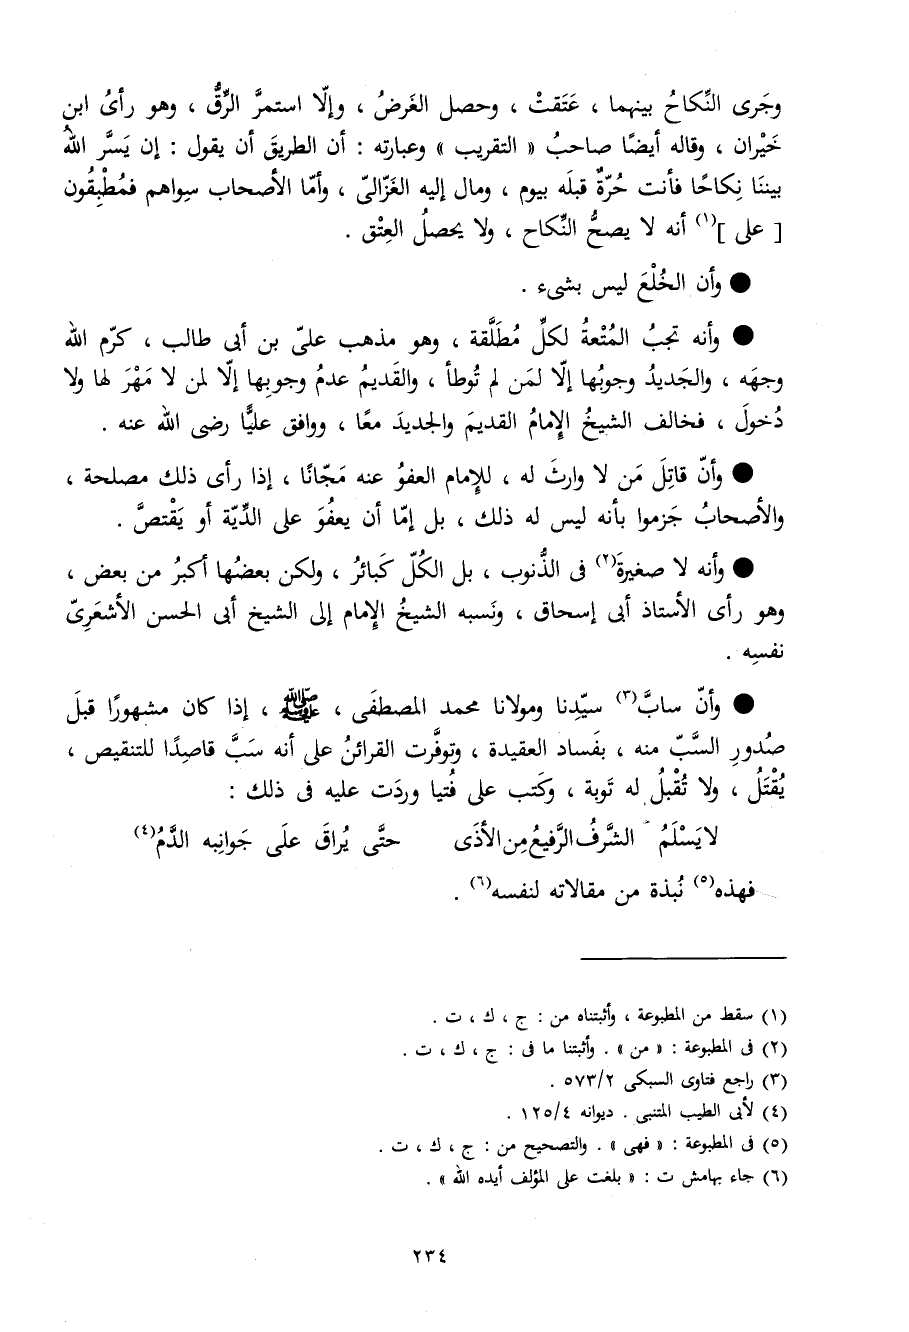 وجَرى النِّكاحُ بينهما ، عَتَقتْ ، وحصل الغَرضُ ، وإلّا استمرَّ الرِّقُّ ، وهو رأىُ ابن
خَيْران ، وقاله أيضًا صاحبُ « التقريب » وعبارته : أن الطريقَ أن يقول : إن يَسَّر اللهُ
بيننَا نِكاحًا فأنت حُرّةٌ قبلَه بيوم ، ومال إليه الغَزالىّ ، وأمّا الأصحاب سِواهم فمُطْبِقُون
[ على ]⁽١⁾ أنه لا يصحُّ النِّكاح ، ولا يحصلُ العِتْق .
● وأن الخُلْعَ ليس بشىء .
● وأنه تجبُ المُتْعةُ لكلِّ مُطَلَّقة ، وهو مذهب علىّ بن أبى طالب ، كرّم الله
وجهَه ، والجَديدُ وجوبُها إلّا لمَن لم تُوطأ ، والقَديمُ عدمُ وجوبِها إلّا لمن لا مَهْرَ لها ولا
دُخولَ ، فخالف الشيخُ الإمامُ القديمَ والجديدَ معًا ، ووافق عليًّا رضى الله عنه .
● وأنّ قاتِلَ مَن لا وارثَ له ، للإمام العفوُ عنه مَجّانًا ، إذا رأى ذلك مصلحة ،
والأصحابُ جَزموا بأنه ليس له ذلك ، بل إمّا أن يعفُوَ على الدِّيّة أو يَقْتصَّ .
● وأنه لا صغيرةَ⁽٢⁾ فى الذُّنوب ، بل الكُلّ كَبائرُ ، ولكن بعضُها أكبرُ من بعض ،
وهو رأى الأستاذ أبى إسحاق ، ونَسبه الشيخُ الإمام إلى الشيخ أبى الحسن الأشعَرِىّ
نفسِه .
● وأنّ سابَّ⁽٣⁾ سيّدِنا ومولانا محمد المصطفَى ، ﷺ ، إذا كان مشهورًا قبلَ
صُدورِ السَّبّ منه ، بفَساد العقيدة ، وتوفَّرت القرائنُ على أنه سَبَّ قاصِدًا للتنقيص ،
يُقْتَلُ ، ولا تُقْبلُ له تَوبة ، وكَتب على فُتيا وردَت عليه فى ذلك :
لا يَسْلَمُ الشَّرفُ الرَّفيعُ مِن الأذَى حتَّى يُراقَ علَى جَوانِبه الدَّمُ⁽٤⁾
فهذه⁽٥⁾ نُبذة من مقالاته لنفسه⁽٦⁾ .
(١) سقط من المطبوعة ، وأثبتناه من : ج ، ك ، ت .
(٢) فى المطبوعة : « من » . وأثبتنا ما فى : ج ، ك ، ت .
(٣) راجع فتاوى السبكى ٥٧٣/٢ .
(٤) لأبى الطيب المتنبى . ديوانه ١٢٥/٤ .
(٥) فى المطبوعة : « فهى » . والتصحيح من : ج ، ك ، ت .
(٦) جاء بهامش ت : « بلغت على المؤلف أيده الله » .
٢٣٤